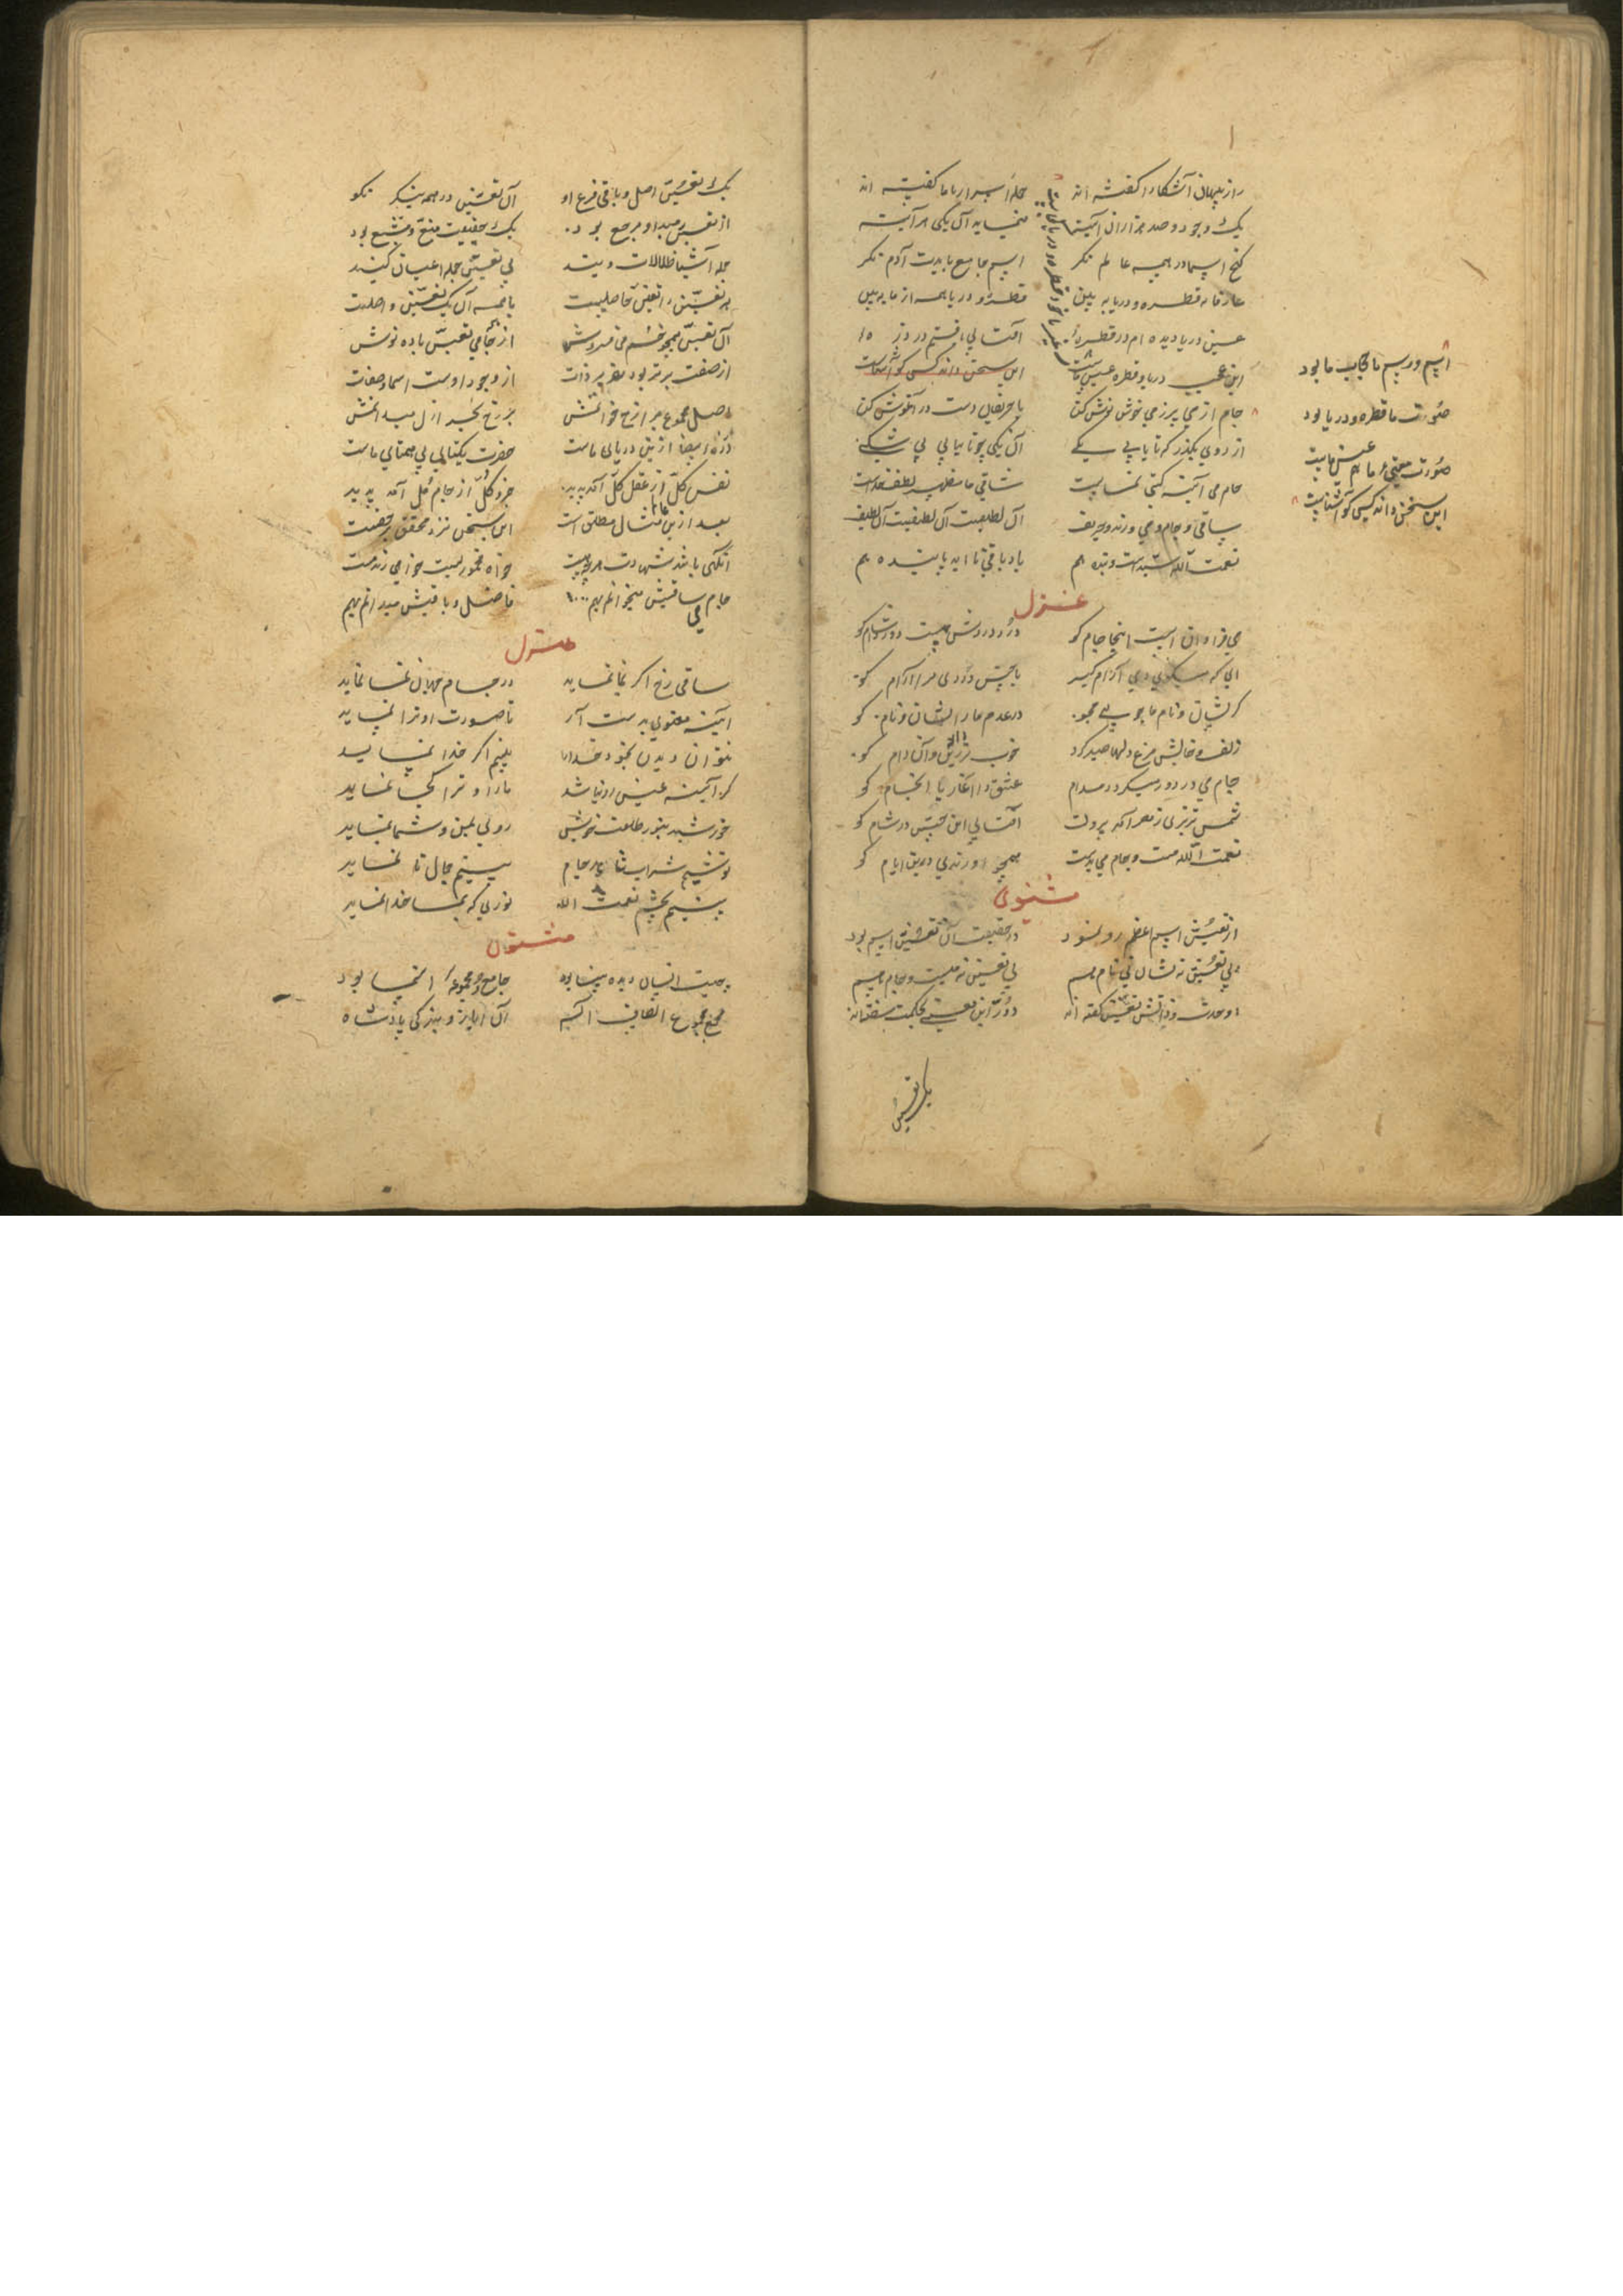 راز پنهان آشکارا گفته اند جمله اسرار با ما گفته اند
یک وجود و صد هزاران آینه مینماید آن یکی هر آینه
گنج اسما در همه عالم نگر اسم جامع بایدت آدم نگر
عارفانه قطره و دریا ببین قطره و دریا همه از ما ببین
عین دریا دیده ام در قطره آفتابی یافتم در ذره
این عجب دریا و قطره عین ماست این سخن داند کسی کو آشناست
اسم و رسم ما حجاب ما بود
صورت ما قطره و دریا بود
صورت و معنی ما هم عین ماست
این سخن داند کسی کو آشناست
جام از می پر ز می خوش نوش کن با حریفان دست در آغوش کن
از دوئی بگذر که تا یابی یکی آن یکی چون تا بیابی بی شکی
جام می آئینه گیتی نماست ساقی ما مظهر لطف خداست
ساقی و جام و می و رند و حریف آن لطیفست آن لطیفست آن لطیف
نعمت الله سید است و بنده هم باد باقی تا ابد پاینده هم
غزل
می فراوان است اینجا جام کو درد دردش هست درد آشام کو
ای که میگوئی دمی آرام گیر با چنین دردی مرا آرام کو
گر نشان و نام ما جوئی مجو در عدم ما را نشان و نام کو
زلف و خالش مرغ دلها صید کرد خوب تر زین دانه و آن دام کو
جام می در دور میگردد مدام عشق را آغاز یا انجام کو
شمس تبریزی ز مهر آمد برون آفتابی این چنین در شام کو
نعمت الله مست و جام می بدست همچو او رندی درین ایام کو
مثنوی
از تعین اسم اعظم رو نمود در حقیقت آن تعین اسم بود
بی تعین نه نشان نی نام هم بی تعین نه میست و جام هم
وحدت ذاتش تعین گفته اند در این معنی بحکمت سفته اند
یک تعین
یک تعین اصل و باقی فرع او آن تعین در همه بنگر نکو
از تعین مبدا و مرجع بود یک حقیقت منبع و مشبع بود
جمله اشیا ظلالات ویند بی تعین جمله اعیان کیند
هر تعین را تعین حاصلست با همه آن یک تعین واصلست
آن تعین همچو خم می فروش از جامی تعین باده نوش
از صفت برتر بود تقریر ذات از وجود اوست اسما و صفات
اصل مجموع برازخ خوانمش برزخ بحر ازل میدانمش
دره بیضا ازین دریای ماست حضرت یکتای بی همتای ماست
نفس کل از عقل کل آمد پدید جزو کل از جام مل آمد پدید
بعد ازین عالم مثال مطلق است این سخن نزد محقق بر حقست
آنگهی باشد شهادت هر چه هست خواه مخمورست خواهی رند مست
جام می ساقیش میخوانم بهم فاضل و باقیش میدانم بهم
غزل
ساقی رخ اگر بما نماید در جام جهان نما نماید
آئینه معنوی بدست آر تا صورت او ترا نماید
نتوان دیدن بخود خدا را بینیم اگر خدا نماید
گر آئینه عین او نباشد ما را و ترا کجا نماید
خورشید بنور طلعت خویش روئی بمن و شما نماید
نوشیم شراب تا ز هر جام بینیم جمال تا نماید
بینیم بچشم نعمت الله نوری که بما خدا نماید
مثنوی
چیست انسان دیده بینا بود جامع مجموعه اسما بود
مجمع مجموع الطاف اله آن ایاز و بندگی پادشاه